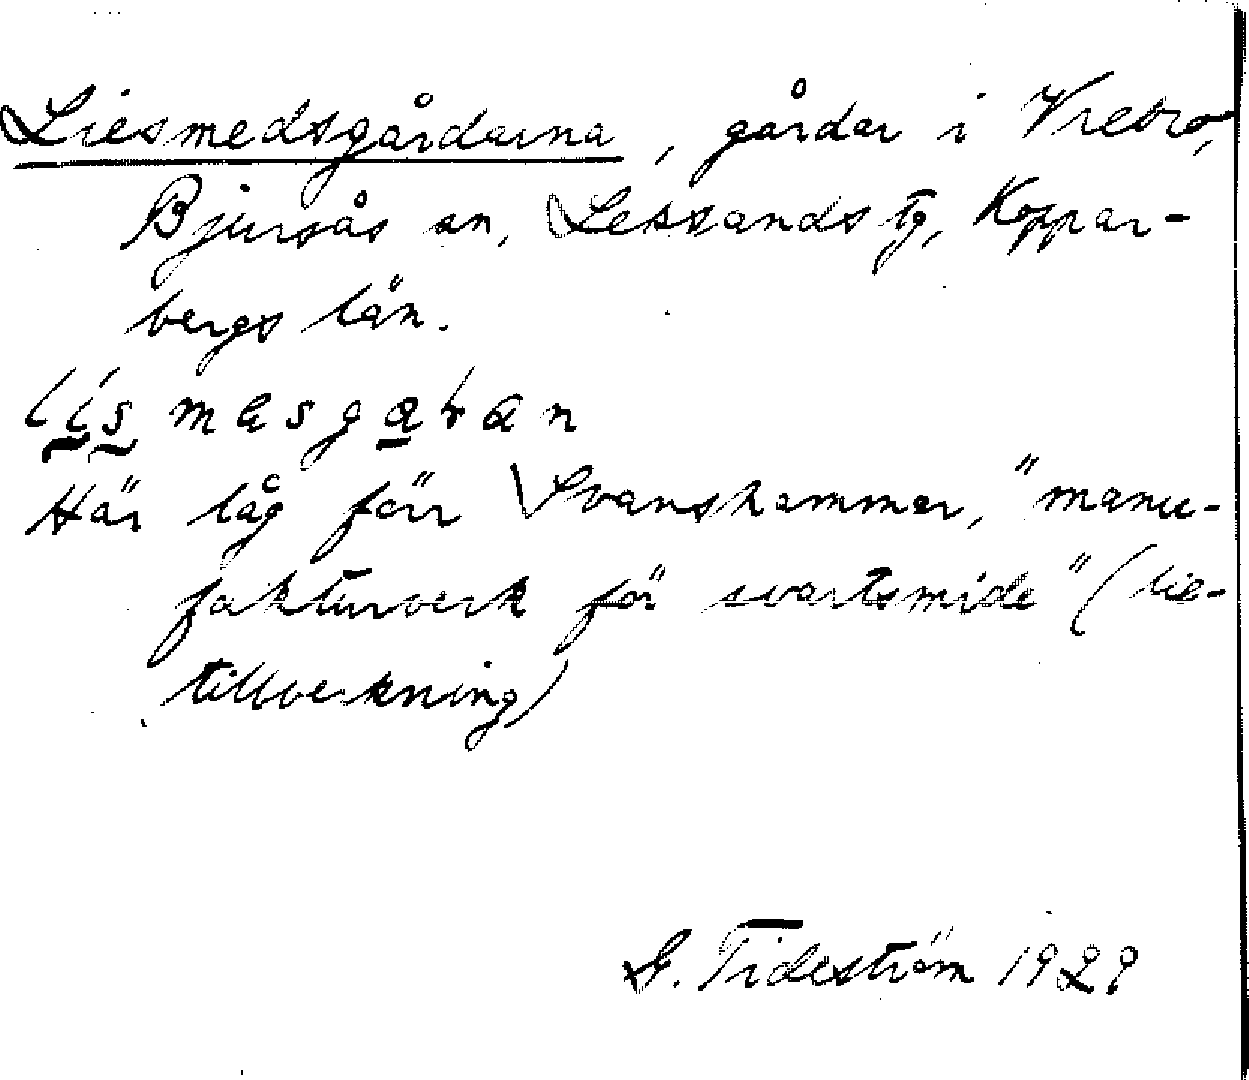 Liesmedsgårdarna, gårdar i Vrebro,
Bjursås sn, Leksands tg, Koppar-
bergs län.
lismasgaran
Här låg förr Svanshammar, "manu-
fakturverk för svartsmide" (lie-
tillverkning)
G. Tideström 1929